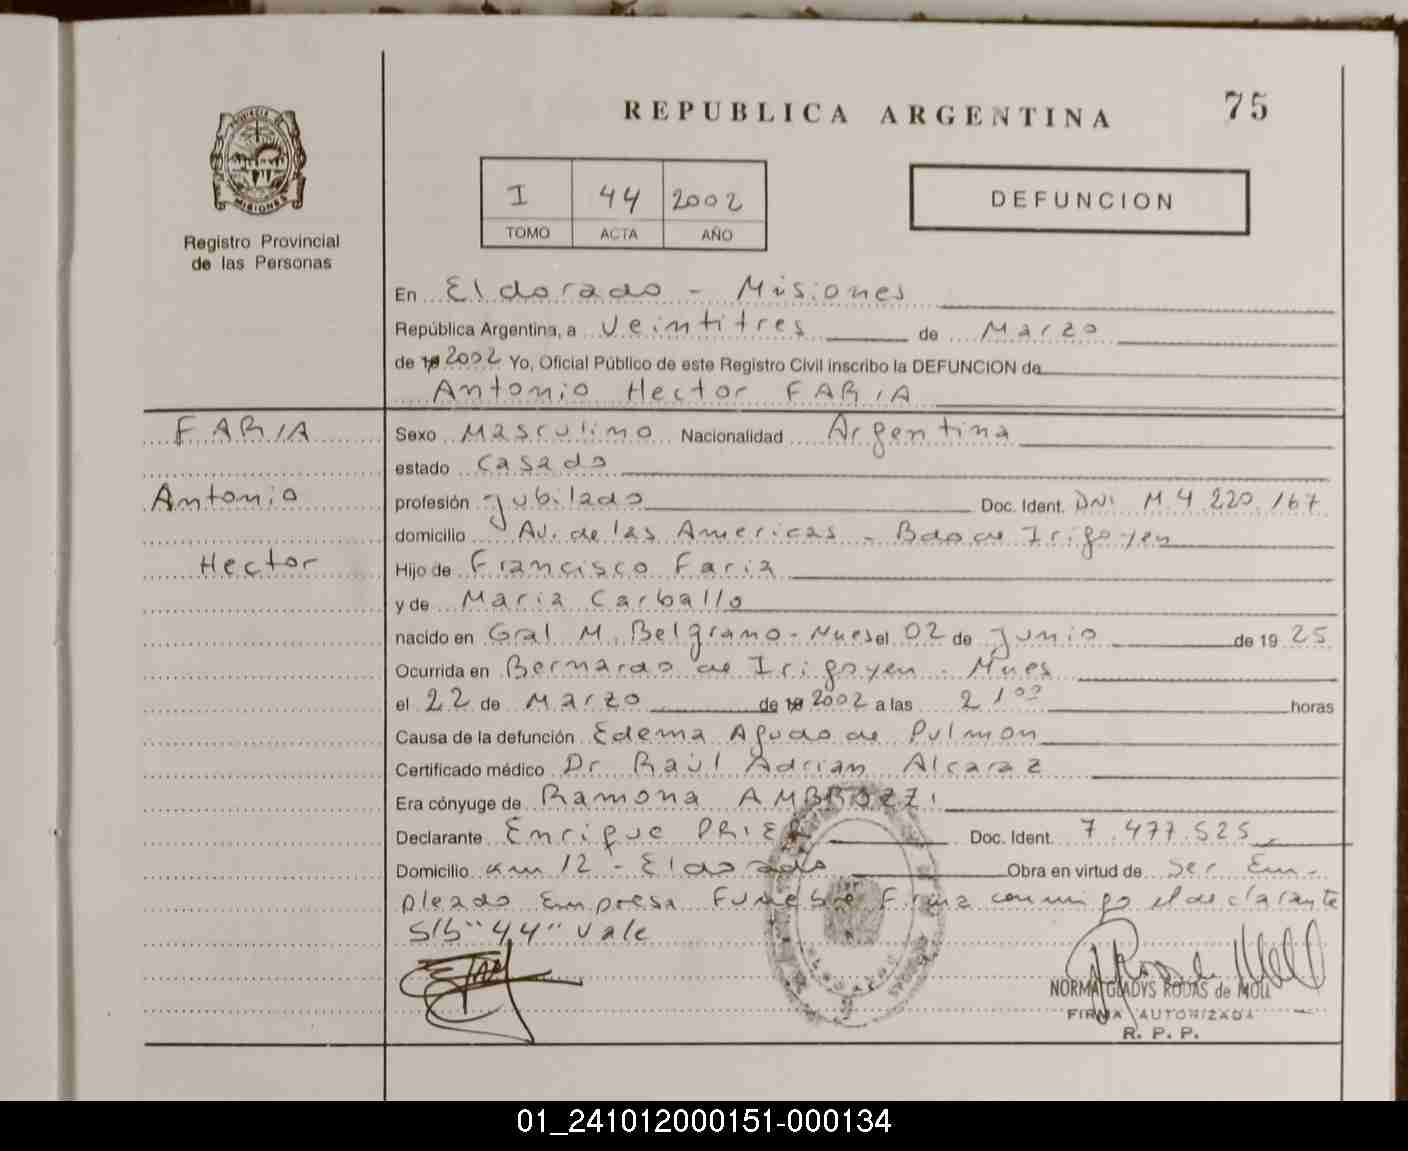 REPUBLICA ARGENTINA
75
PROVINCIA DE
MISIONES
Registro Provincial
de las Personas
I 44 2002
TOMO ACTA AÑO
DEFUNCION
En Eldorado - Misiones
República Argentina, a veintitres de Marzo
de 19 2002 Yo, Oficial Público de este Registro Civil inscribo la DEFUNCION de
Antonio Hector FARIA
FARIA
Antonio
Hector
Sexo Masculino Nacionalidad Argentina
estado Casado
profesión jubilado Doc. Ident. DNI M 4.220.167
domicilio Av. de las Americas - Bdo de Irigoyen
Hijo de Francisco Faria
y de Maria Carballo
nacido en Gral M. Belgrano - Mnes el 02 de junio de 19 25
Ocurrida en Bernardo de Irigoyen - Mnes
el 22 de Marzo de 19 2002 a las 21 00 horas
Causa de la defunción Edema Agudo de Pulmon
Certificado médico Dr Raúl Adrian Alcaraz
Era cónyuge de Ramona AMBROZZI
Declarante Enrique PRIER Doc. Ident. 7.477.525
Domicilio km 12 - Eldorado Obra en virtud de Ser Em-
pleado Empresa Funebre Firma conmigo el declarante
S/b "44" vale
NORMA GLADYS RODAS de MOLL
FIRMA AUTORIZADA
R. P. P.
01_241012000151-000134